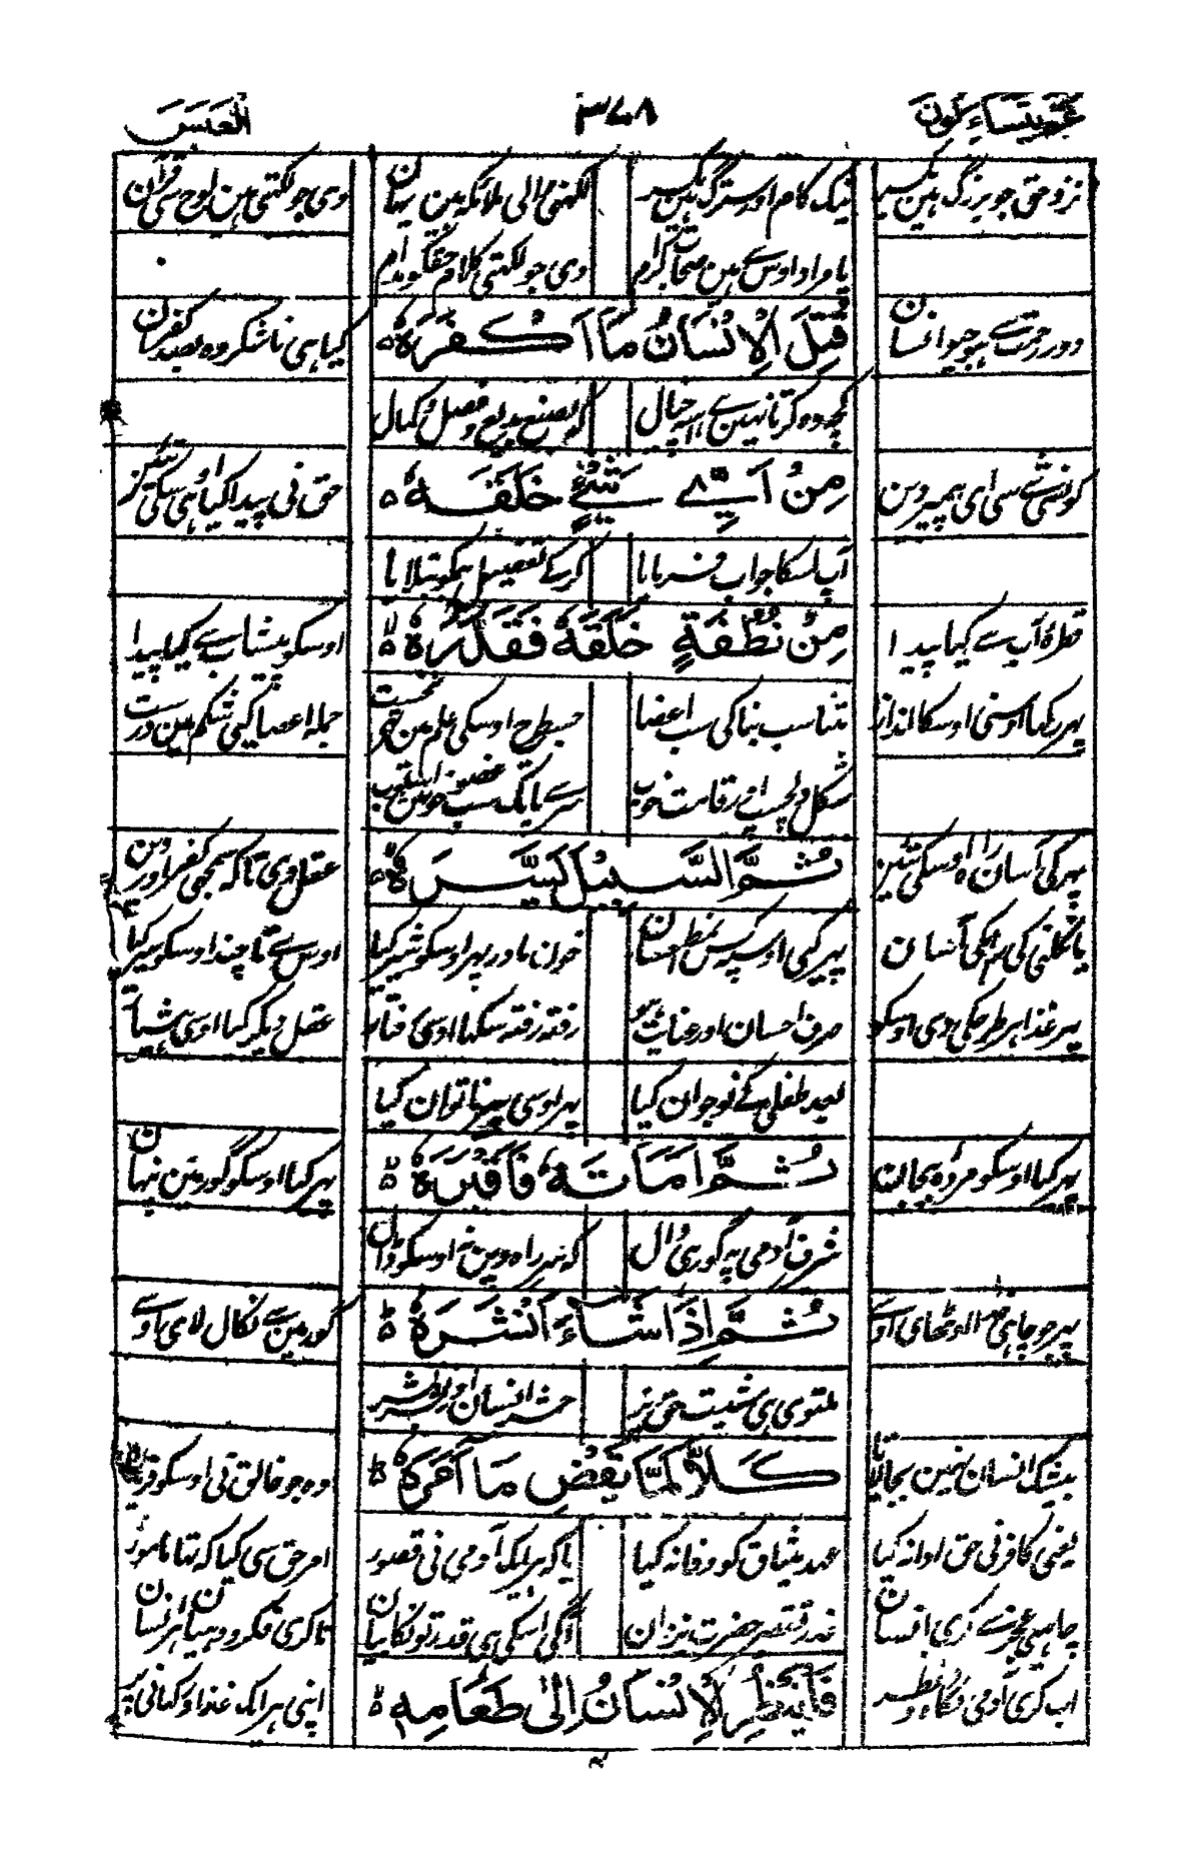 عم یتساءلون ۳۷۸ العبس
نزد حق جو بزرگ ہین یکسر نیک کام اور سترگ ہین یکسر لکہنی والی ملائکہ ہین یہان وی جو لکہتی ہین لوح سی قرآن
یا مراد اوس سے ہین صحاب کرام وی جو لکہتی کلام حق کو مدام
دور رحمت سے ہو جیو انسان قُتِلَ الْاِنْسَانُ مَا اَكْفَرَهٗ کیا ہی ناشکر وہ بصد کفران
کچہ وہ کرتا نہین ہے اسپہ خیال کہ بصنع بدیع و فضل و کمال
کونسی شے سی ای ہمیرو مین مِنْ اَيِّ شَيْءٍ خَلَقَهٗ حق نی پیدا کیا
آپ اسکا جواب فرمایا کر کے تفصیل ہمکو بتلایا
قطرۂ آب سے کیا پیدا مِنْ نُطْفَةٍ خَلَقَهٗ فَقَدَّرَهٗ اوسکو پیشاب سے کیا پیدا
پہر رکہا اوسنی اوسکا انداز متناسب بنا کی سب اعضا جسطرح اوسکی علم مین تہی نخست جملہ اعضا کیی شکم مین درست
شکل دلچسپ اور قامت خوب سر سے پا تک سب عضو
پہر کی آسان راہ اوسکی تئین ثُمَّ السَّبِيْلَ يَسَّرَهٗ عقل دی تاکہ سمجہی کفر اور دین
یا نکلنی کی راہ کی آسان پہر کیی اوسپہ کس نمط احسان خون مادر پہر اوسکو شیر کیا اوس سے تا چند اوسکو سیر کیا
پہر غذا ہر طرحکی دی اوسکو صرف احسان اور عنایت رفتہ رفتہ سکہا اوسی رفتار عقل دیکر کیا اوسی ہشیار
بعد طفلی کے نوجوان کیا پہر اوسی پیر ناتوان کیا
پہر کیا اوسکو مردہ بیجان ثُمَّ اَمَاتَهٗ فَاَقْبَرَهٗ پہر کیا اوسکو گور مین پنہان
شرف آدمی پہ گور ہی دال کہ نہ راہ مین نہ اوسکو ڈال
پہر جو چاہی اوٹہای اوسے ثُمَّ اِذَا شَاءَ اَنْشَرَهٗ گور مین سے نکال لای اوسے
ملتوی ہی مشیت حق پر حشر انسان اور
بیشک انسان نہین بجا لایا كَلَّا لَمَّا يَقْضِ مَا اَمَرَهٗ وہ جو خالق نی اوسکو فرمایا
یعنی کافر نی حق ادا نہ کیا عہد میثاق کو وفا نہ کیا یا کہ ہر ایک آدمی نی قصور امر حق سی کیا کہ تہا مامور
چاہیی عجز سے کری انسان عذر تقصیر حضرت یزدان آگی اسکی ہی قدرتونکا بیان تا کری فکر و دہیان ہر انسان
اب کری آدمی نگاہ و نظر فَلْيَنْظُرِ الْاِنْسَانُ اِلٰى طَعَامِهٖ اپنی ہر اک غذا و کہانی پر